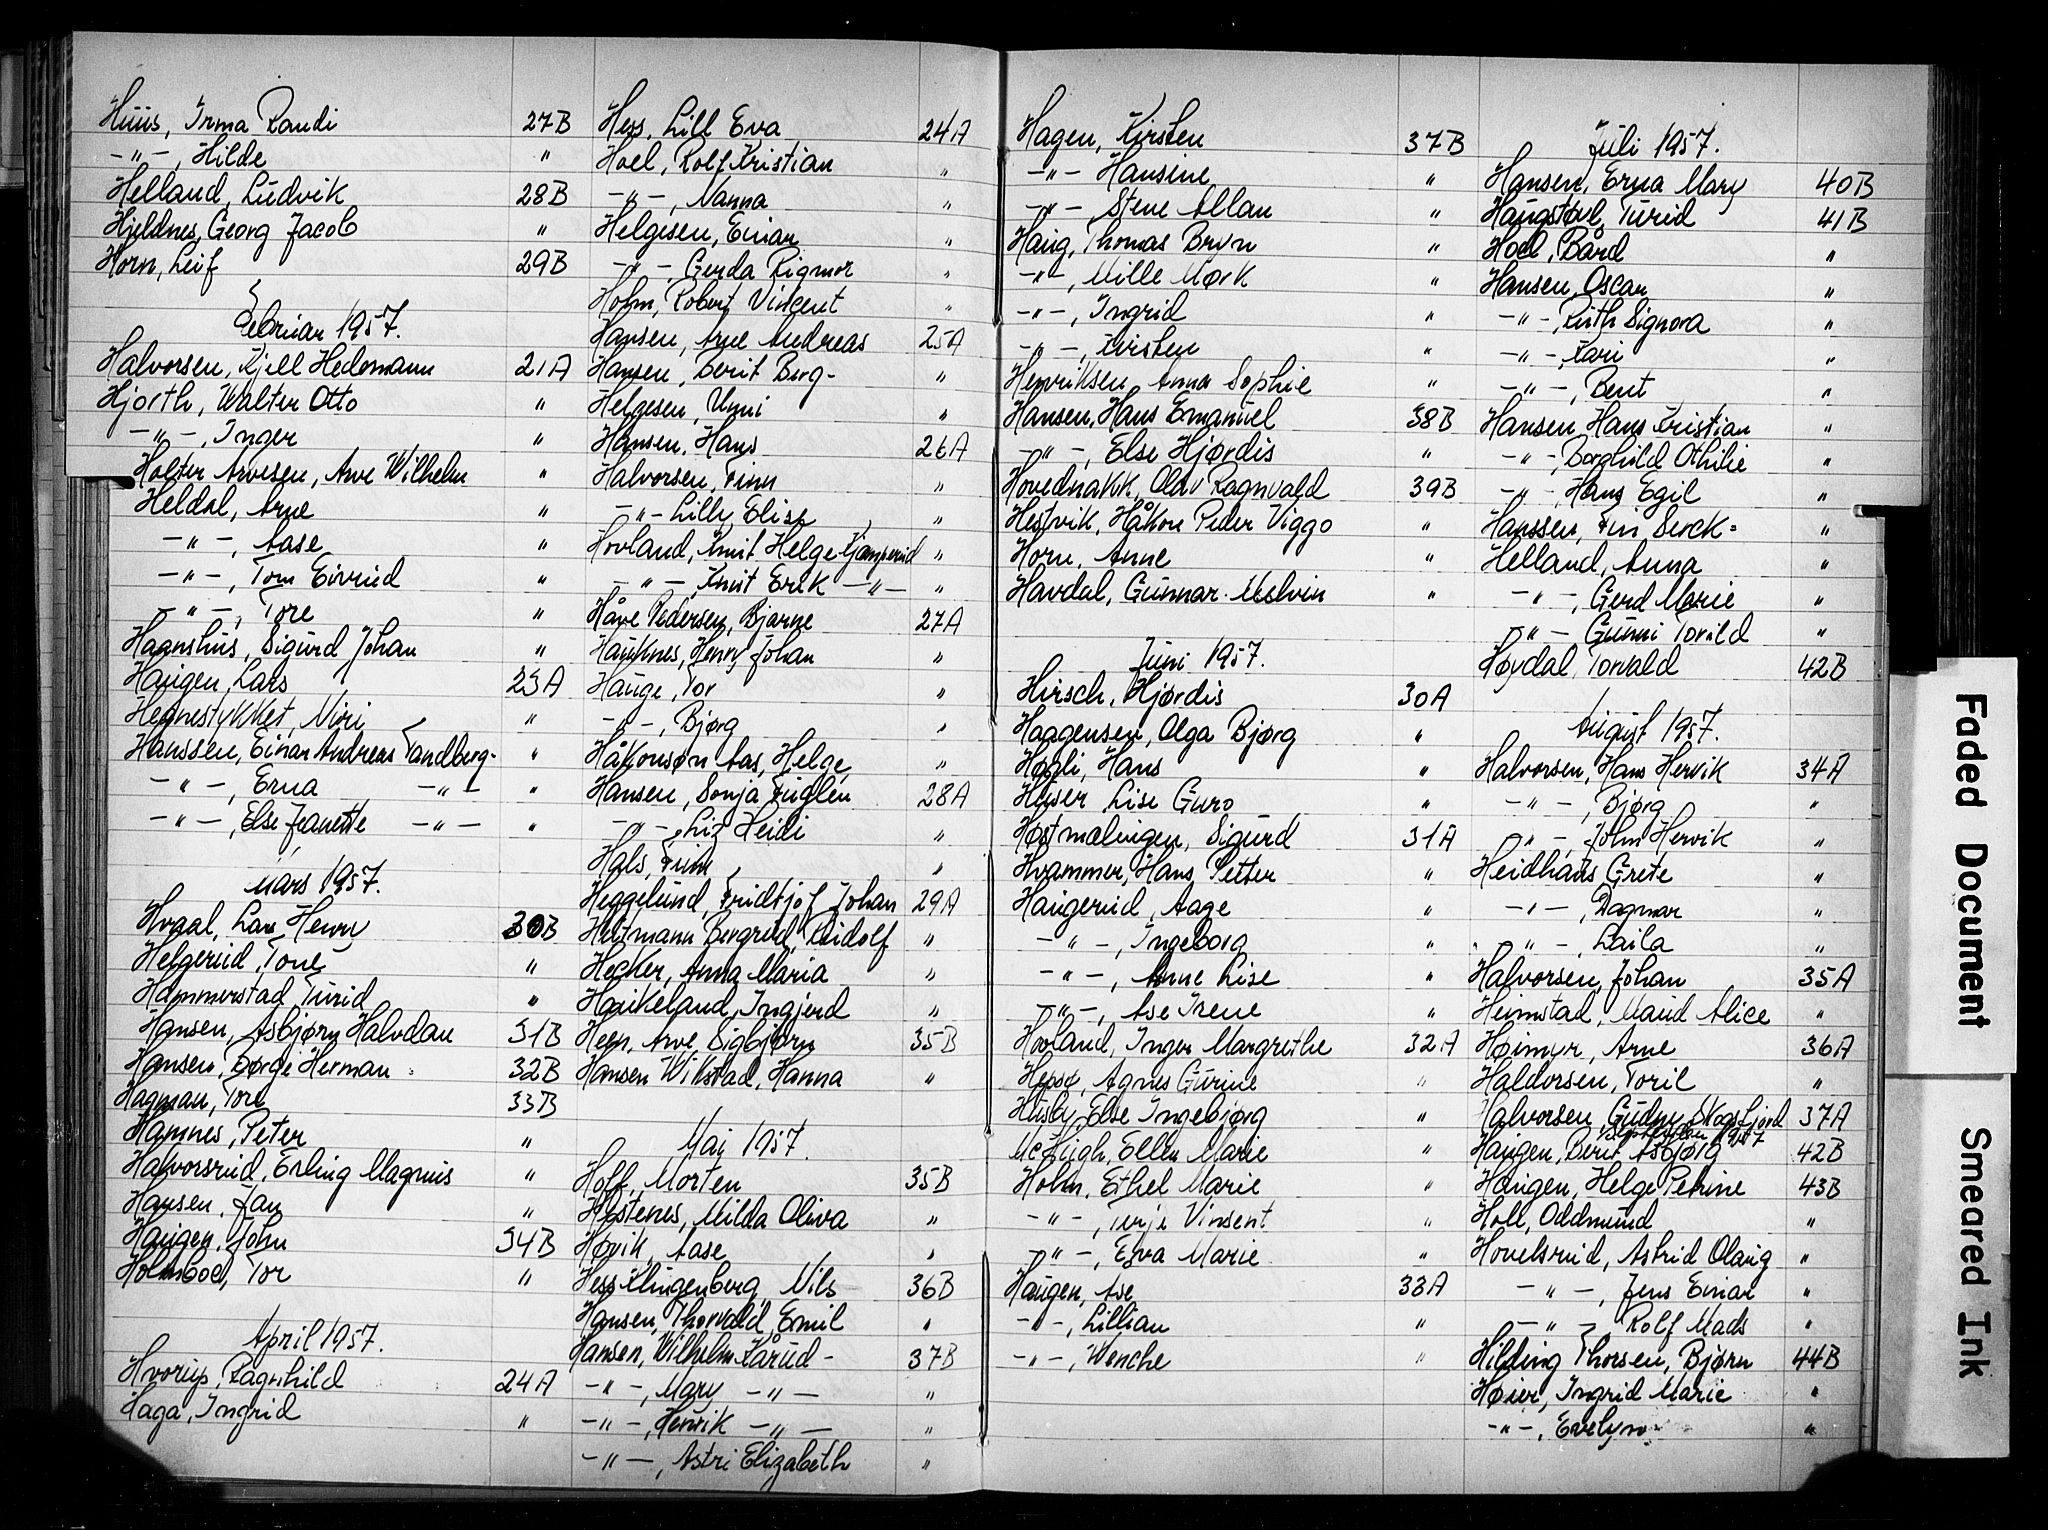 Huus, Irma Randi 27B
-"-, Hilde "
Helland, Ludvik 28B
Hjeldnes, Georg Jacob "
Horn, Leif 29B
Februar 1957.
Halvorsen, Kjell Hedemann 21A
Hjorth, Walter Otto "
-"-, Inger "
Holter Arvesen, Arve Wilhelm "
Heldal, Arne "
-"-, Aase "
-"-, Tom Eivind "
-"-, Tore "
Haanshus, Sigurd Johan "
Haugen, Lars 23A
Hegnestykket, Niri "
Hanssen, Einar Andreas Tandberg- "
-"-, Erna -"- "
-"-, Else Jeanette -"- "
Mars 1957.
Hvaal, Lars Henry 30B
Helgerud, Tone "
Hammerstad, Turid "
Hansen, Asbjørn Halvdan 31B
Hansen, Børge Herman 32B
Hagman, Tore 33B
Hamnes, Peter "
Halvorsrud, Erling Magnus "
Hansen, Jan "
Haugen, John 34B
Holmboe, Tor "
April 1957.
Hvorup, Ragnhild 24A
Haga, Ingrid "
Hess, Lill Eva 24A
Hoel, Rolf Kristian "
-"-, Nanna "
Helgesen, Einar "
-"-, Gerda Rigmor "
Holm, Robert Vincent "
Hansen, Arne Andreas 25A
Hansen, Berit Berg- "
Helgesen, Unni "
Hansen, Hans 26A
Halvorsen, Finn "
-"- Lilly Elise "
Hovland, Knut Helge Kjempenrud "
-"-, Knut Erik -"- "
Håve Pedersen, Bjarne 27A
Hauknes, Henry Johan "
Hauge, Tor "
-"-, Bjørg "
Håkonsøn Aas, Helge "
Hansen, Sonja Fuglen 28A
-"-, Liz Heidi "
Hals, Finn "
Heggelund, Fridtjof Johan 29A
Heitmann Bergrud, Rudolf "
Hecker, Anna Maria "
Haukeland, Ingjerd "
Heen, Arve Sigbjørn 35B
Hansen Wikstad, Hanna "
Mai 1957.
Hoff, Morten 35B
Hestenes, Milda Oliva "
Høvik, Aase "
Hess Klingenberg, Nils 36B
Hansen, Thorvald Emil "
Hansen, Wilhelm Kårud- 37B
-"-, Mary -"- "
-"-, Henrik -"- "
-"-, Astri Elizabeth "
Hagen, Kirsten 37B
-"- Hansine "
-"-, Stene Allan "
Haug, Thomas Brun "
-"-, Mille Mørk "
-"-, Ingrid "
-"-, Kirsten "
Henriksen, Anna Sophie "
Hansen, Hans Emanuel 38B
-"-, Else Hjørdis "
Hovednakk, Olav Ragnvald 39B
Hestvik, Håkon Peder Viggo "
Horn, Anne "
Havdal, Gunnar Melvin "
Juni 1957.
Hirsch, Hjørdis 30A
Haagensen, Olga Bjørg "
Høgli, Hans "
Heiser, Lise Guro "
Høstmælingen, Sigurd 31A
Hvammer, Hans Petter "
Haugerud, Aage "
-"-, Ingeborg "
-"-, Anne Lise "
-"-, Åse Irene "
Hovland, Inger Margrethe 32A
Hepsø, Agnes Gurine "
Husby, Else Ingebjørg "
McHugh, Ellen Marie "
Holm, Ethel Marie "
-"-, Terje Vinsent "
-"-, Eva Marie "
Haugen, Åse 33A
-"-, Lillian "
-"-, Wenche "
Juli 1957.
Hansen, Erna Mary 40B
Haugstøyl, Turid 41B
Hoel, Bård "
Hansen, Oscar "
-"-, Ruth Signora "
-"-, Kari "
-"-, Bent "
Hansen, Hans Kristian "
-"-, Borghild Othilie "
-"-, Hans Egil "
Hanssen, Fin Serck= "
Helland, Anna "
-"-, Gerd Marie "
-"- Gunni Torild "
Høydal, Torvald 42B
August 1957.
Halvorsen, Hans Hervik 34A
-"-, Bjørg "
-"-, John Hervik "
Heidhaus Grete "
-"-, Dagmar "
-"-, Laila "
Halvorsen, Johan 35A
Heimstad, Maud Alice "
Høimyr, Arne 36A
Haldorsen, Toril "
Halvorsen, Gudny Skogsfjord 37A
September 1957
Haugen, Berit Asbjørg 42B
Haugen, Helge Petrine 43B
Holl, Oddmund "
Hovelsrud, Astrid Olaug "
-"-, Jens Einar "
-"-, Rolf Mads "
Hilding Thorsen, Bjørn 44B
Høier, Ingrid Marie "
-"-, Evelyn "
Faded Document
Smeared Ink